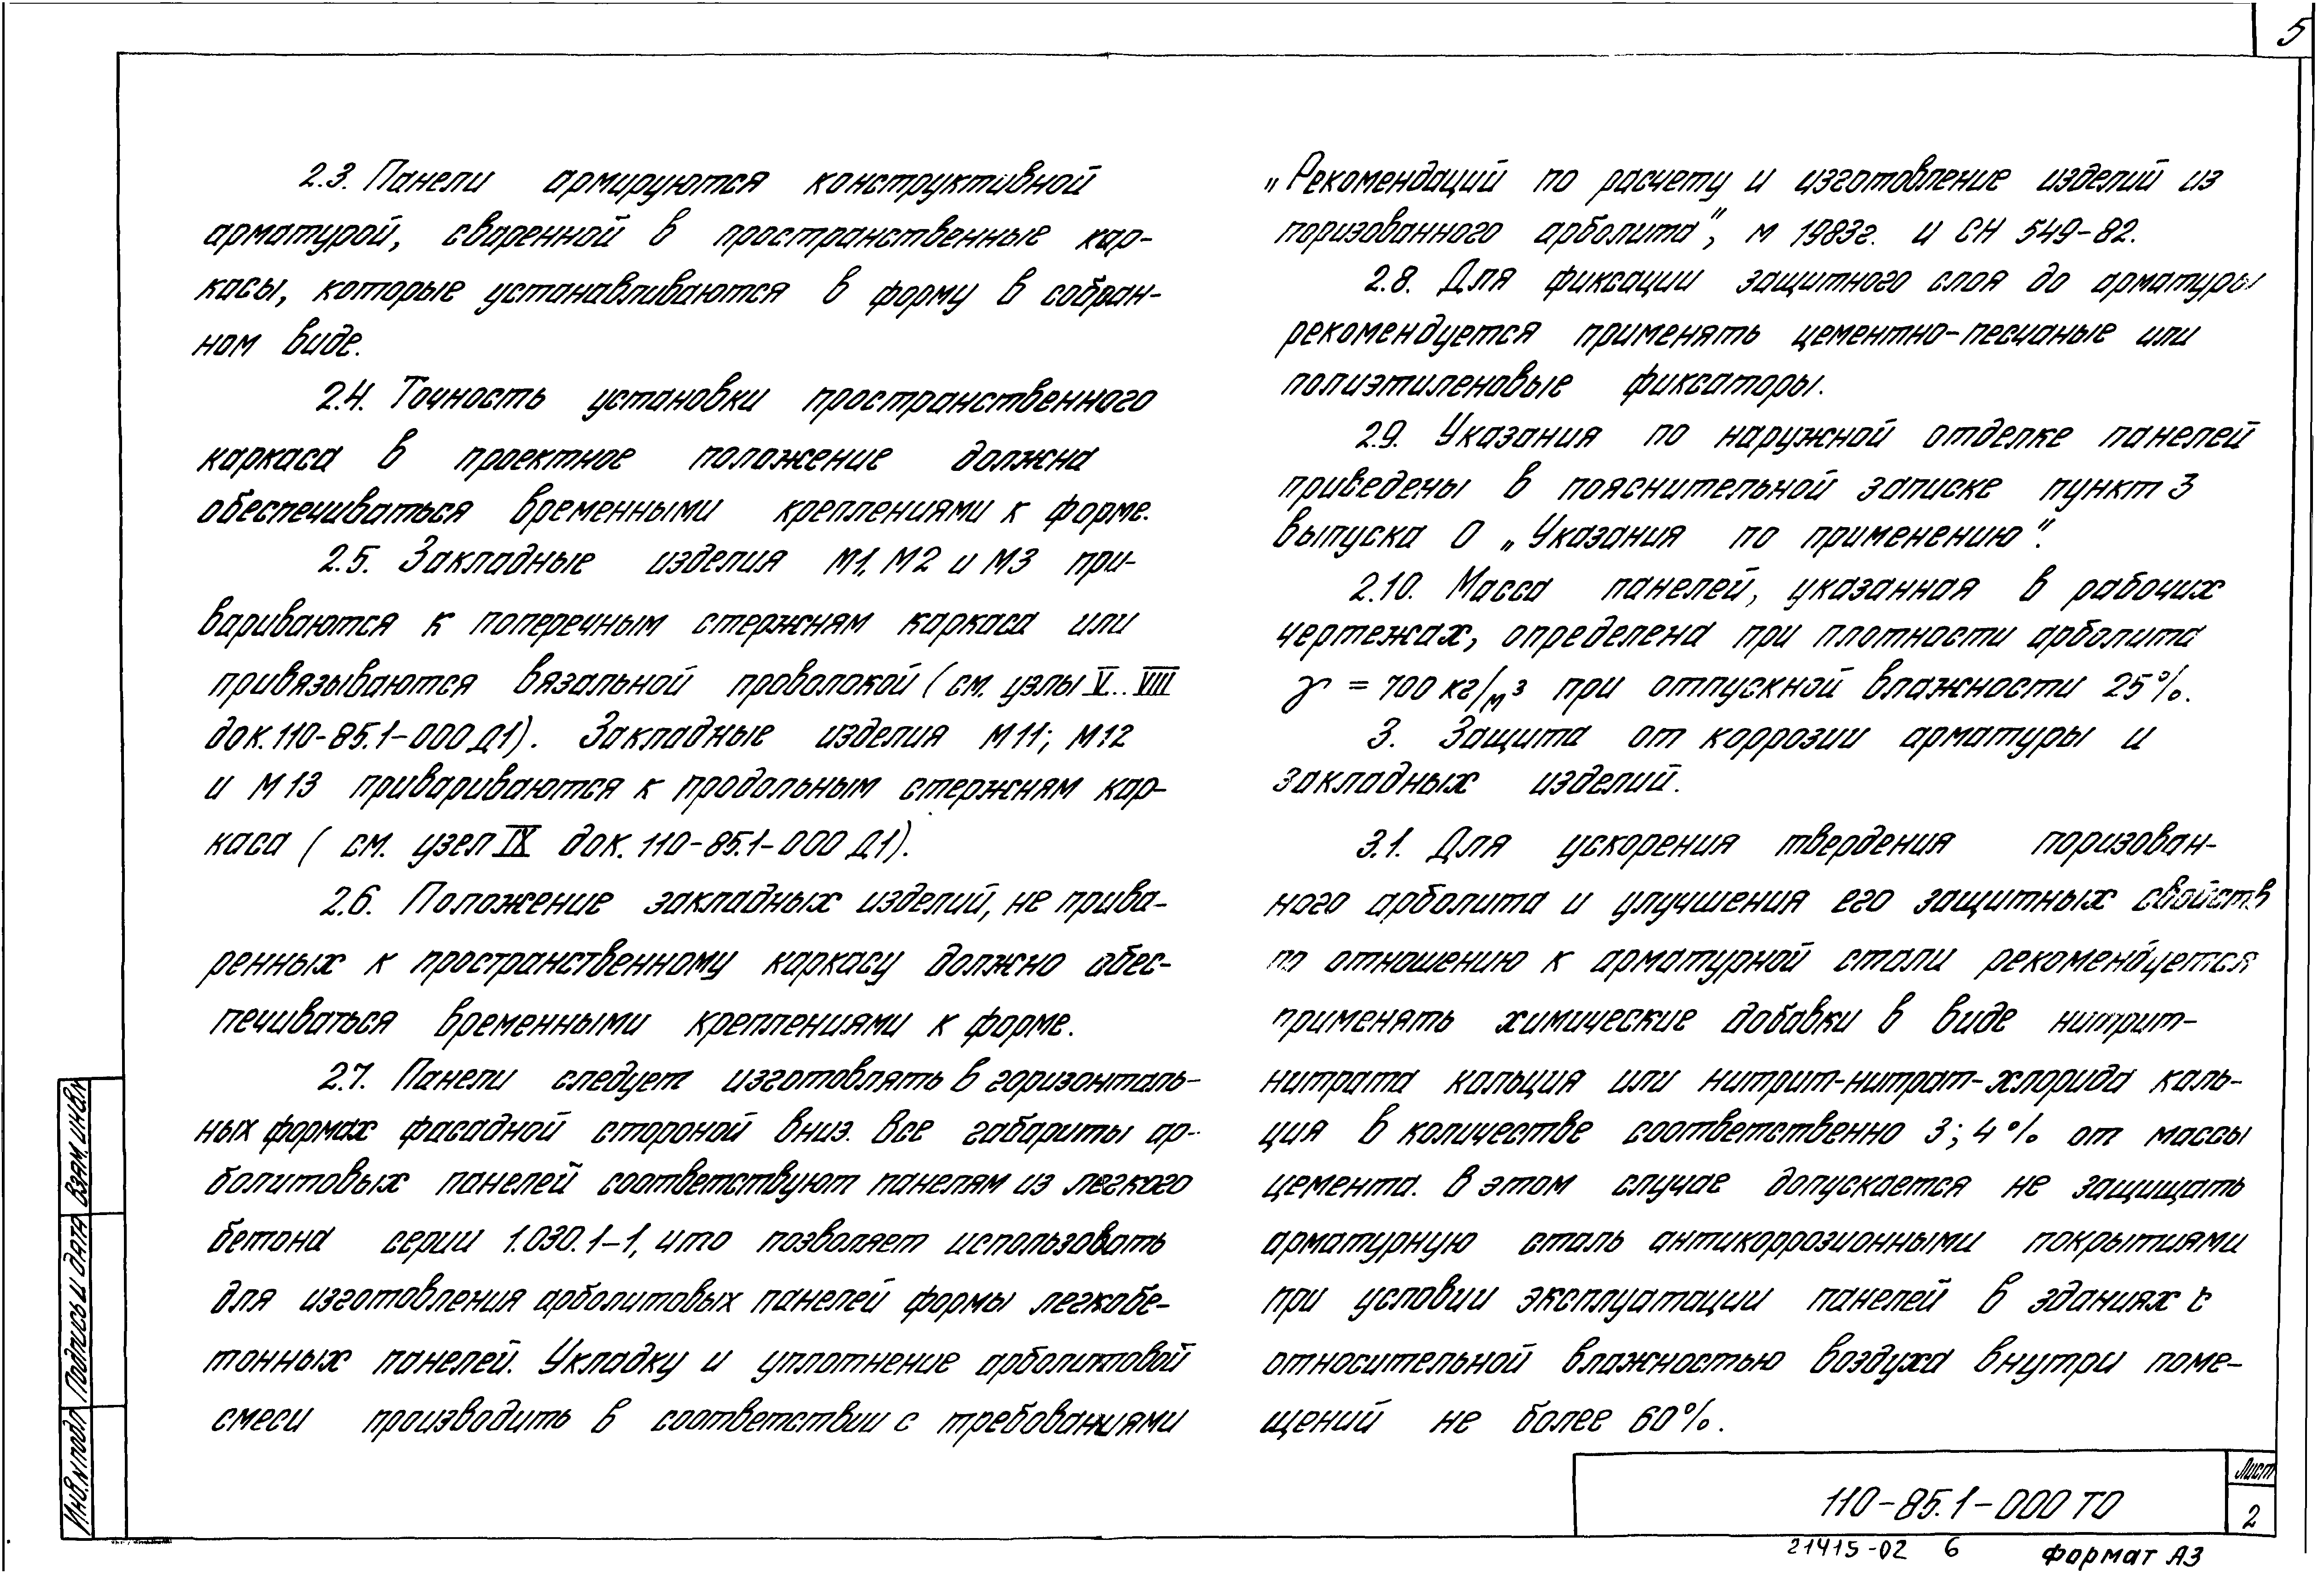 5
2.3. Панели армируются конструктивной
арматурой, сваренной в пространственные кар-
касы, которые устанавливаются в форму в собран-
ном виде.
2.4. Точность установки пространственного
каркаса в проектное положение должна
обеспечиваться временными креплениями к форме.
2.5. Закладные изделия М1, М2 и М3 при-
вариваются к поперечным стержням каркаса или
привязываются вязальной проволокой (см. узлы V..VIII
док.110-85.1-000Д1). Закладные изделия М11; М12
и М13 привариваются к продольным стержням кар-
каса ( см. узел IX док. 110-85.1-000 Д1).
2.6. Положение закладных изделий, не прива-
ренных к пространственному каркасу должно обес-
печиваться временными креплениями к форме.
2.7. Панели следует изготовлять в горизонталь-
ных формах фасадной стороной вниз. Все габариты ар-
болитовых панелей соответствуют панелям из легкого
бетона серии 1.030.1-1, что позволяет использовать
для изготовления арболитовых панелей формы легкобе-
тонных панелей. Укладку и уплотнение арболитовой
смеси производить в соответствии с требованиями
„Рекомендаций по расчету и изготовление изделий из
поризованного арболита", М 1983г. и СН 549-82.
2.8. Для фиксации защитного слоя до арматуры
рекомендуется применять цементно-песчаные или
полиэтиленовые фиксаторы.
2.9. Указания по наружной отделке панелей
приведены в пояснительной записке пункт 3
выпуска 0 „Указания по применению".
2.10. Масса панелей, указанная в рабочих
чертежах, определена при плотности арболита
γ = 700 кг/м³ при отпускной влажности 25%.
3. Защита от коррозии арматуры и
закладных изделий.
3.1. Для ускорения твердения поризован-
ного арболита и улучшения его защитных свойств
по отношению к арматурной стали рекомендуется
применять химические добавки в виде нитрит-
нитрата кальция или нитрит-нитрат-хлорида каль-
ция в количестве соответственно 3; 4% от массы
цемента. В этом случае допускается не защищать
арматурную сталь антикоррозионными покрытиями
при условии эксплуатации панелей в зданиях с
относительной влажностью воздуха внутри поме-
щений не более 60%.
Инв.N подл Подпись и дата Взам.инв.N
110-85.1-000 ТО
Лист
2
21415-02 6
Формат А3